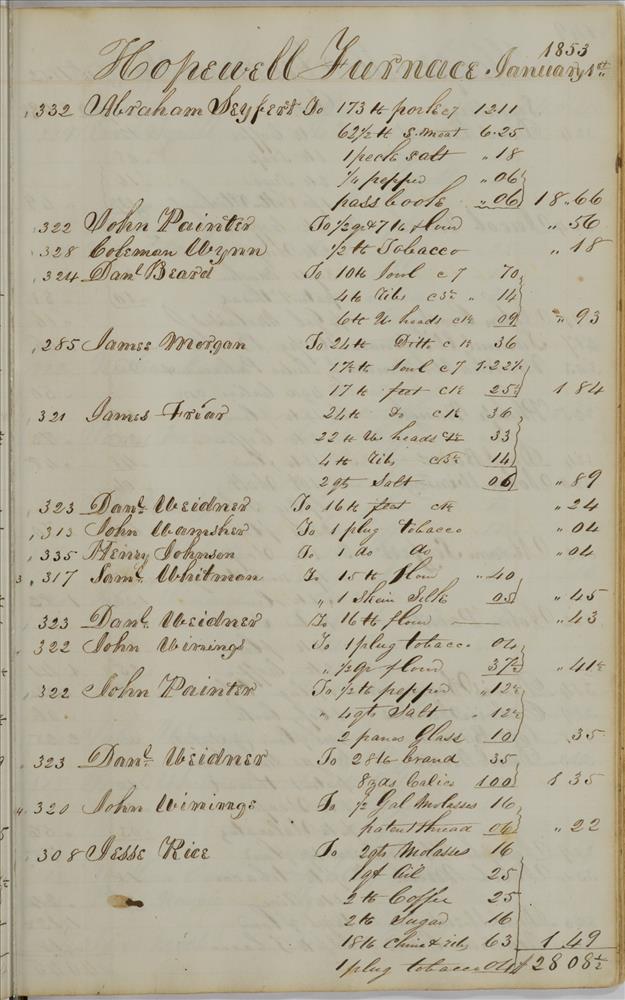 1853
Hopewell Furnace January 1st
332 Abraham Seyfert To 173 lb pork c7 12.11
62½ lb S. meat 6.25
1 peck salt " 18
¼ pepper " 06
pass book " 06 18.66
322 John Painter To ½ qr & 7 lb flour " 56
328 Coleman Wynn ½ lb Tobacco " 18
324 Danl Beard To 10 lb Jowl c7 70
4 lb Ribs c3½ " 14
6 lb heads c1½ 09 " 93
285 James Morgan To 24 lb Ditto c1½ 36
17½ lb Jowl c7 1.22½
17 lb feet c1½ 25½ 1 84
321 James Friar 24 lb Do c1½ 36
22 lb heads c1½ 33
4 lb Ribs c3½ 14
2 qts Salt 06 " 89
323 Danl Weidner To 16 lb feet c1½ " 24
313 John Wamsher To 1 plug tobacco " 04
335 Henry Johnson To 1 do do " 04
3 317 Saml Whitman To 15 lb flour " 40
" 1 Skein Silk 05 " 45
323 Danl Weidner To 16 lb flour " 43
322 John Winings To 1 plug tobacco 04
" ½ qr flour 37½ " 41½
322 John Painter To ½ lb pepper " 12½
" 4 qts Salt " 12½
2 panes Glass 10 35
323 Danl Weidner To 28 lb brand 35
8 yds Calico 100 1 35
4 320 John Winings To ½ Gal Molasses 16
patent thread 06 " 22
308 Jesse Rice To 2 qts Molasses 16
1 qt Oil 25
2 lb Coffee 25
2 lb Sugar 16
18 lb Chine & ribs 63 1.49
1 plug tobacco 04 $28 08½